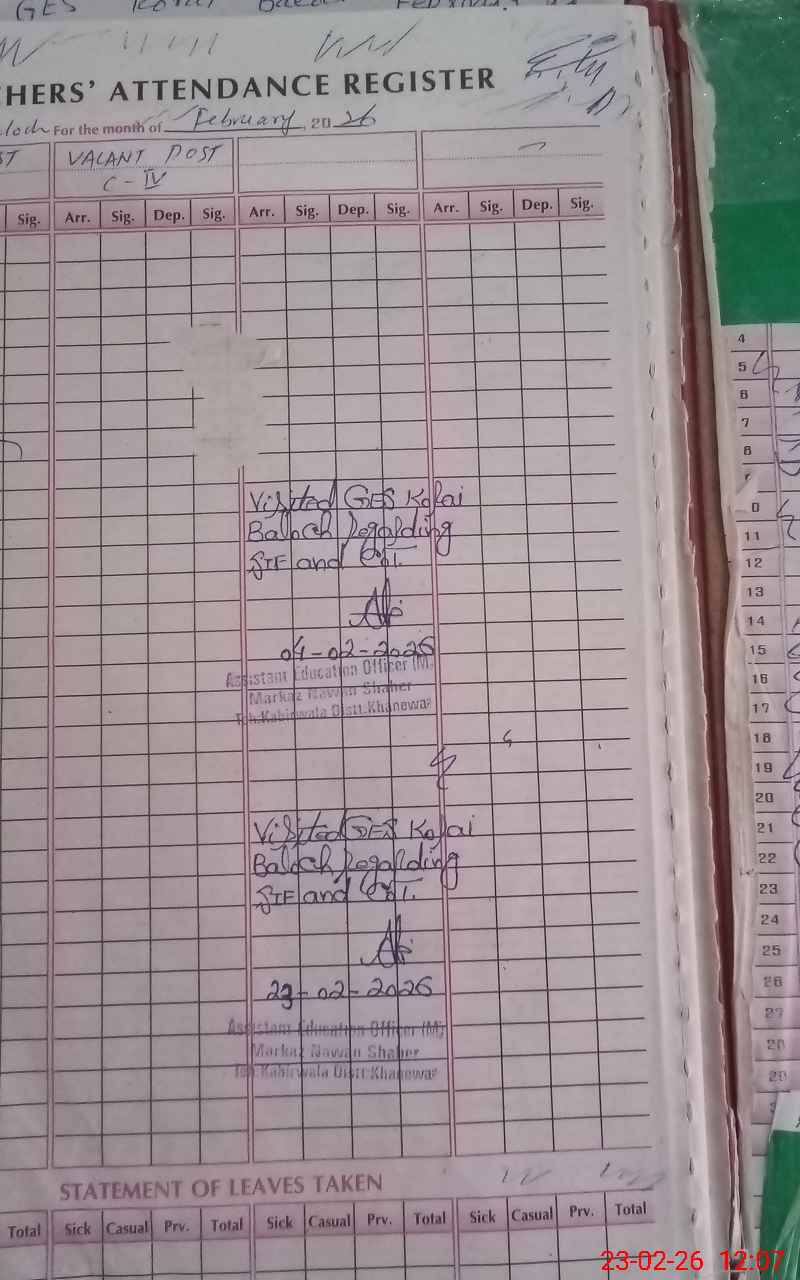 GES
HERS' ATTENDANCE REGISTER
loch For the month of February, 2026
ST VACANT POST
C-IV
Sig. Arr. Sig. Dep. Sig. Arr. Sig. Dep. Sig. Arr. Sig. Dep. Sig.
Visited GES Kotai
Baloch regarding
STF and
04-02-2026
Assistant Education Officer (M)
Markaz Nawan Shaher
Teh. Kabirwala Distt: Khanewal
Visited GES Kotai
Baloch regarding
STF and
23-02-2026
Assistant Education Officer (M)
Markaz Nawan Shaher
Teh. Kabirwala Distt: Khanewal
STATEMENT OF LEAVES TAKEN
Total Sick Casual Prv. Total Sick Casual Prv. Total Sick Casual Prv. Total
4
5
6
7
8
11
12
13
14
15
16
17
18
19
20
21
22
23
24
25
26
27
28
29
23-02-26 12:07